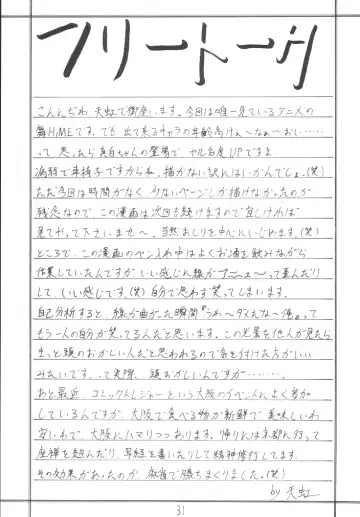 フリートーク
こんにちわ 天虹で御座います。今回は唯一見ているアニメの
舞HiMEです。でも 出て来るキャラの年齢高けぇ～なぁ～おい……
って思ったら真白ちゃんの登場で ヤル気度UPですよ
病弱で車椅子ですからね、描かない訳にはいかんでしょ。(笑)
ただ今回は時間がなく 少ないページしか描けなかったのが
残念なので、この漫画は次回も続けますので宜しければ
見てやって下さいませ～、当然おしりを中心にいじめます。(笑)
ところで、この漫画のペン入れ中はよくお酒を飲みながら
作業していたんですが いい感じに線が アニュ～って歪んだり
して、いい感じです。(笑) 自分で思わず笑ってしまいます。
自己分析すると、線が曲がった瞬間『うわ～ダメだな～俺』って
もう一人の自分が笑ってるんだと思います。この光景を他人が見たら
きっと頭のおかしい人だと思われるので気を付けた方がいい
みたいです。って実際、頭おかしいんですが……。
あと最近、コミックトレジャーという大阪のイベントによく参加
しているんですが、大阪で食べる物が新鮮で 美味しいわ
安いわで、大阪にハマりつつあります。帰りには京都に行って
座禅を組んだり、写経を書いたりして精神修行してます。
その効果があったのか 麻雀で勝ちまくりました。(笑)
by 天虹
31